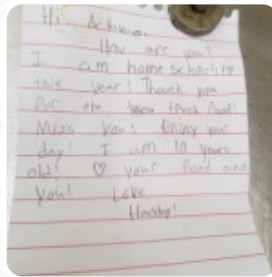 Hi
How are you?
I am home schooling
this year! Thank you
for the taco truck food!
Miss you! Enjoy your
day! I am 10 years
old! ♡ your food and
you! Love